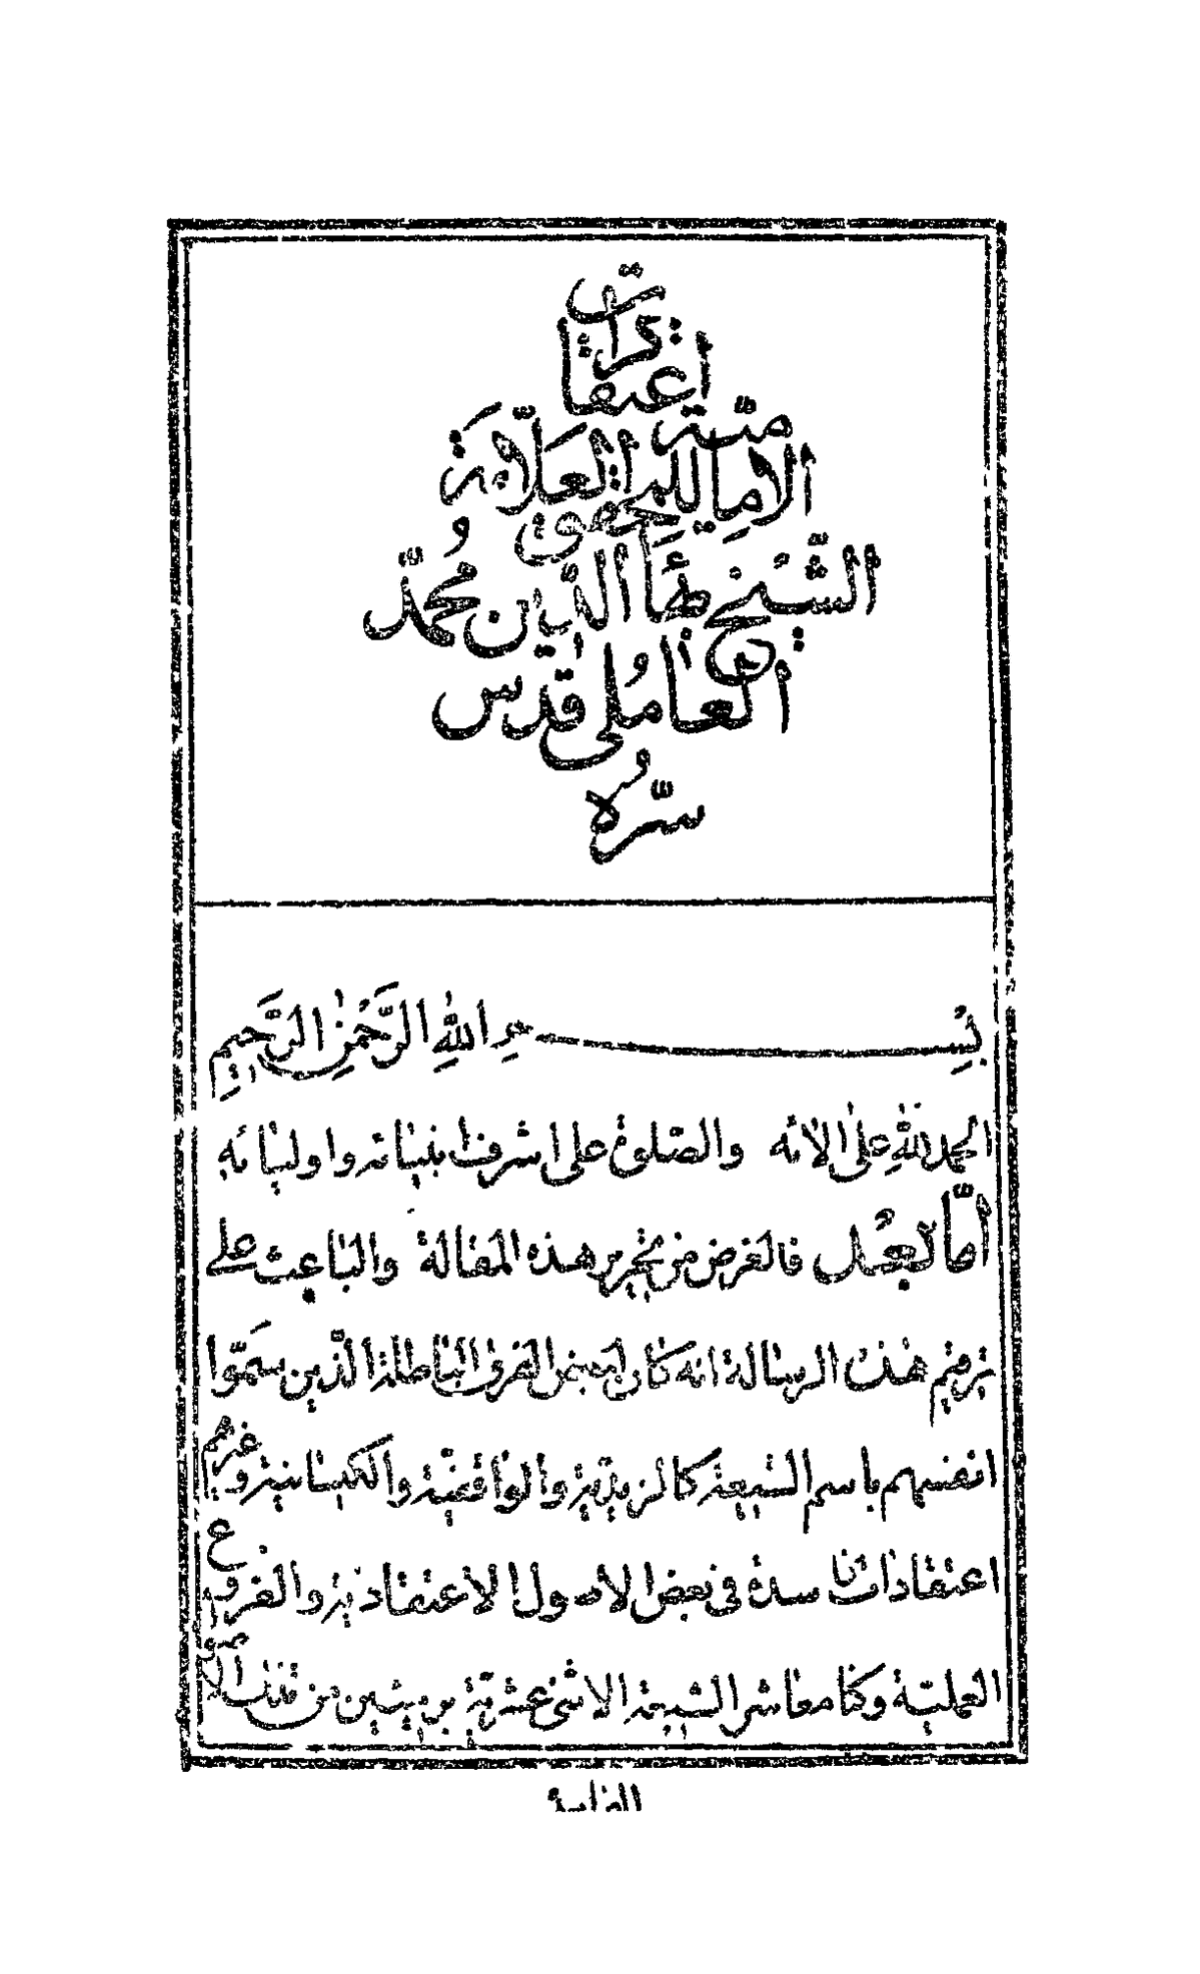 اعتقادات
الامامية للمحقق العلامة
الشيخ بهاء الدين محمد
العاملي قدس
سره
بسم الله الرحمن الرحيم
الحمد لله على الائه والصلوة على اشرف انبيائه واوليائه
اما بعد فالغرض من تحرير هذه المقالة والباعث على
ترقيم هذه الرسالة انه كان لبعض الفرق الباطلة الذين سموا
انفسهم باسم الشيعة كالزيدية والواقفية والكيسانية وغيرهم
اعتقادات فاسدة في بعض الاصول الاعتقادية والفروع
العملية وكنا معاشر الشيعة الاثنى عشرية بريئين من تلك
الفاسدة